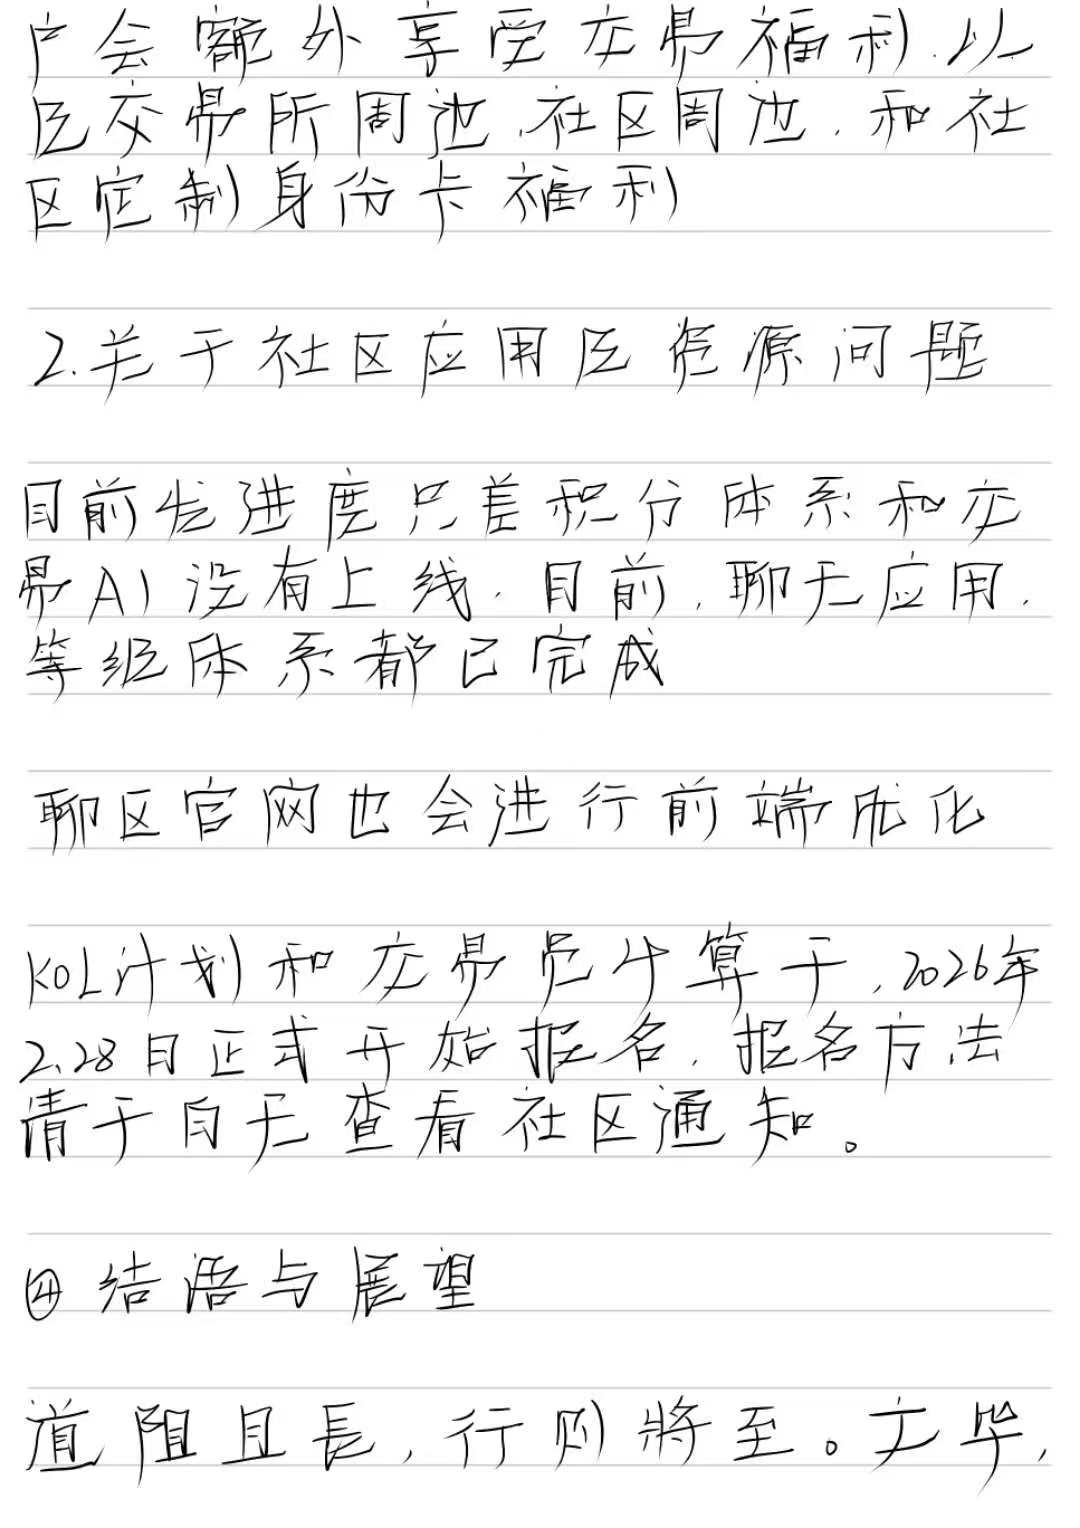 户会额外享受交易福利.以
及交易所周边,社区周边,和社
区定制身份卡福利
2.关于社区应用及资源问题
目前发进度只差积分体系和交
易AI没有上线.目前,聊天应用.
等级体系都已完成
聊区官网也会进行前端优化
KOL计划和交易员计算于,2026年
2.28日正式开始报名.报名方法
请于自无查看社区通知。
④结语与展望
道阻且長,行则將至。文毕,